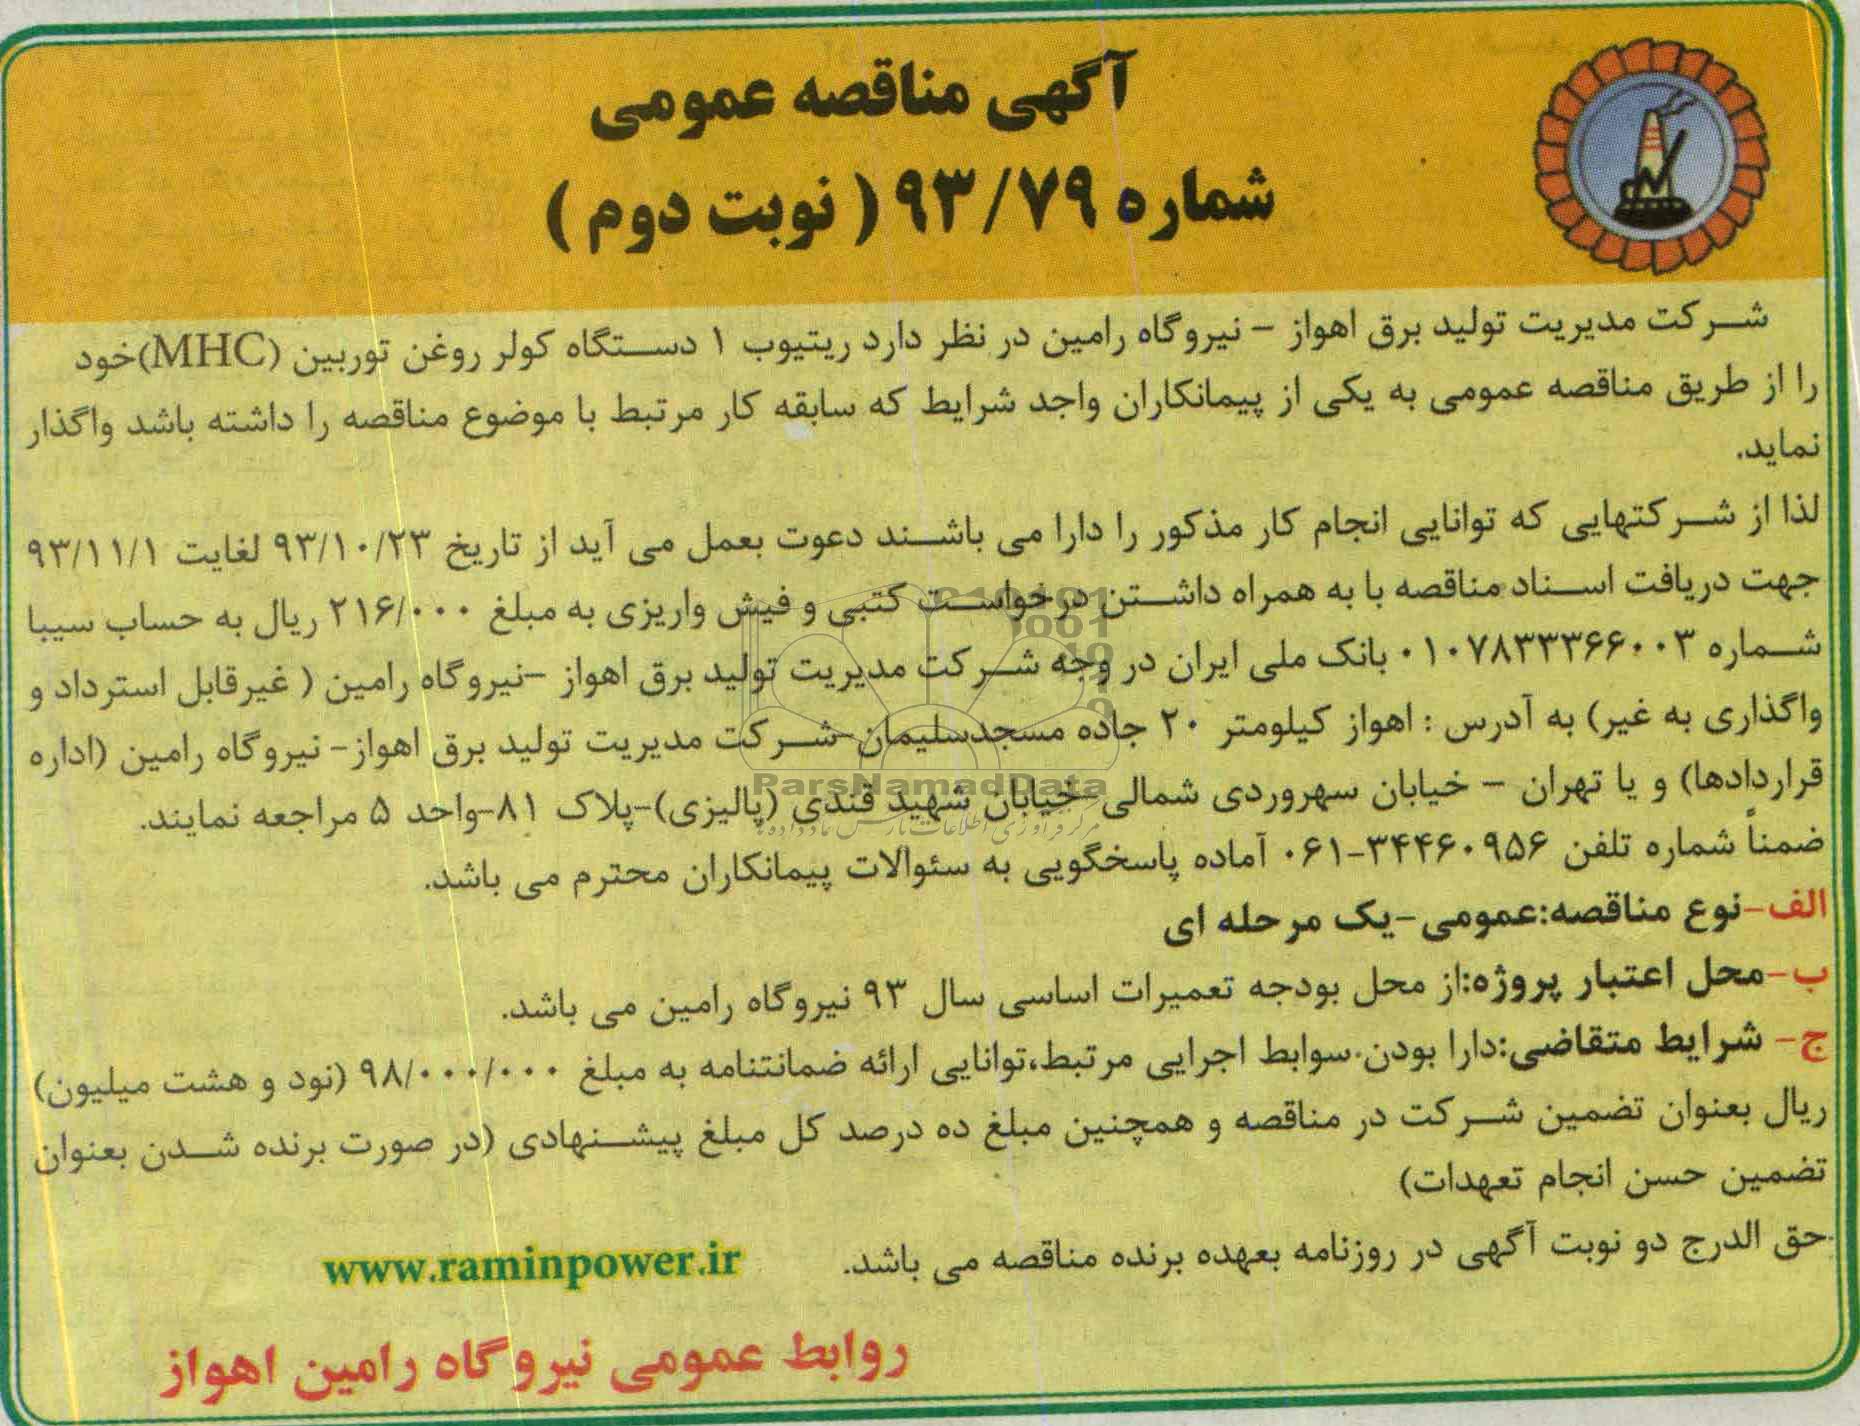 آگهی مناقصه عمومی
شماره ۹۳/۷۹ ( نوبت دوم )
شرکت مدیریت تولید برق اهواز – نیروگاه رامین در نظر دارد ریتیوب ۱ دستگاه کولر روغن توربین (MHC)خود
را از طریق مناقصه عمومی به یکی از پیمانکاران واجد شرایط که سابقه کار مرتبط با موضوع مناقصه را داشته باشد واگذار
نماید.
لذا از شرکتهایی که توانایی انجام کار مذکور را دارا می باشند دعوت بعمل می آید از تاریخ ۹۳/۱۰/۲۳ لغایت ۹۳/۱۱/۱
جهت دریافت اسناد مناقصه با به همراه داشتن درخواست کتبی و فیش واریزی به مبلغ ۲۱۶/۰۰۰ ریال به حساب سیبا
شماره ۰۱۰۷۸۳۳۳۶۶۰۰۳ بانک ملی ایران در وجه شرکت مدیریت تولید برق اهواز –نیروگاه رامین ( غیرقابل استرداد و
واگذاری به غیر) به آدرس : اهواز کیلومتر ۲۰ جاده مسجدسلیمان–شرکت مدیریت تولید برق اهواز- نیروگاه رامین (اداره
قراردادها) و یا تهران – خیابان سهروردی شمالی–خیابان شهید قندی (پالیزی)-پلاک ۸۱-واحد ۵ مراجعه نمایند.
ضمناً شماره تلفن ۳۴۴۶۰۹۵۶-۰۶۱ آماده پاسخگویی به سئوالات پیمانکاران محترم می باشد.
الف-نوع مناقصه:عمومی-یک مرحله ای
ب-محل اعتبار پروژه:از محل بودجه تعمیرات اساسی سال ۹۳ نیروگاه رامین می باشد.
ج- شرایط متقاضی:دارا بودن سوابط اجرایی مرتبط،توانایی ارائه ضمانتنامه به مبلغ ۹۸/۰۰۰/۰۰۰ (نود و هشت میلیون)
ریال بعنوان تضمین شرکت در مناقصه و همچنین مبلغ ده درصد کل مبلغ پیشنهادی (در صورت برنده شدن بعنوان
تضمین حسن انجام تعهدات)
حق الدرج دو نوبت آگهی در روزنامه بعهده برنده مناقصه می باشد.
www.raminpower.ir
روابط عمومی نیروگاه رامین اهواز
ParsNamadData